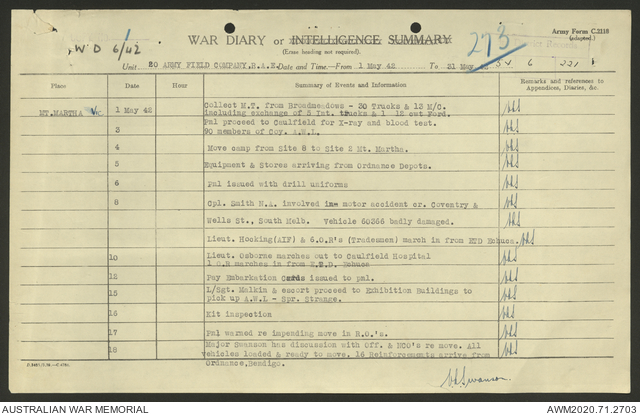 W D 6/42
WAR DIARY or INTELLIGENCE SUMMARY
(Erase heading not required).
273
Army Form C.2118
(adapted.)
Unit 20 ARMY FIELD COMPANY, R.A.E. Date and Time.—From 1 May 42 To 31 May 42
Place Date Hour Summary of Events and Information Remarks and references to Appendices, Diaries, &c.
MT. MARTHA Vic 1 May 42 Collect M.T. from Broadmeadows - 30 Trucks & 13 M/C.
including exchange of 5 Int. trucks & 1 12 cwt Ford.
3 Pnl proceed to Caulfield for X-ray and blood test.
90 members of Coy. A.W.L.
4 Move camp from Site 8 to Site 2 Mt. Martha.
5 Equipment & Stores arriving from Ordnance Depots.
6 Pnl issued with drill uniforms
8 Cpl. Smith N.A. involved in motor accident cr. Coventry &
Wells St., South Melb. Vehicle 60266 badly damaged.
Lieut. Hosking(AIF) & 6.O.R's (Tradesmen) march in from ETD Echuca.
10 Lieut. Osborne marches out to Caulfield Hospital
1 O.R marches in from E.T.D. Echuca
12 Pay Embarkation Cards issued to pnl.
15 L/Sgt. Malkin & escort proceed to Exhibition Buildings to
pick up A.W.L - Spr. Strange.
16 Kit inspection
17 Pnl warned re impending move in R.O.'s.
18 Major Swanson has discussion with Off. & NCO's re move. All
vehicles loaded & ready to move. 16 Reinforcements arrive from
Ordnance, Bendigo.
Swanson
AUSTRALIAN WAR MEMORIAL AWM2020.71.2703